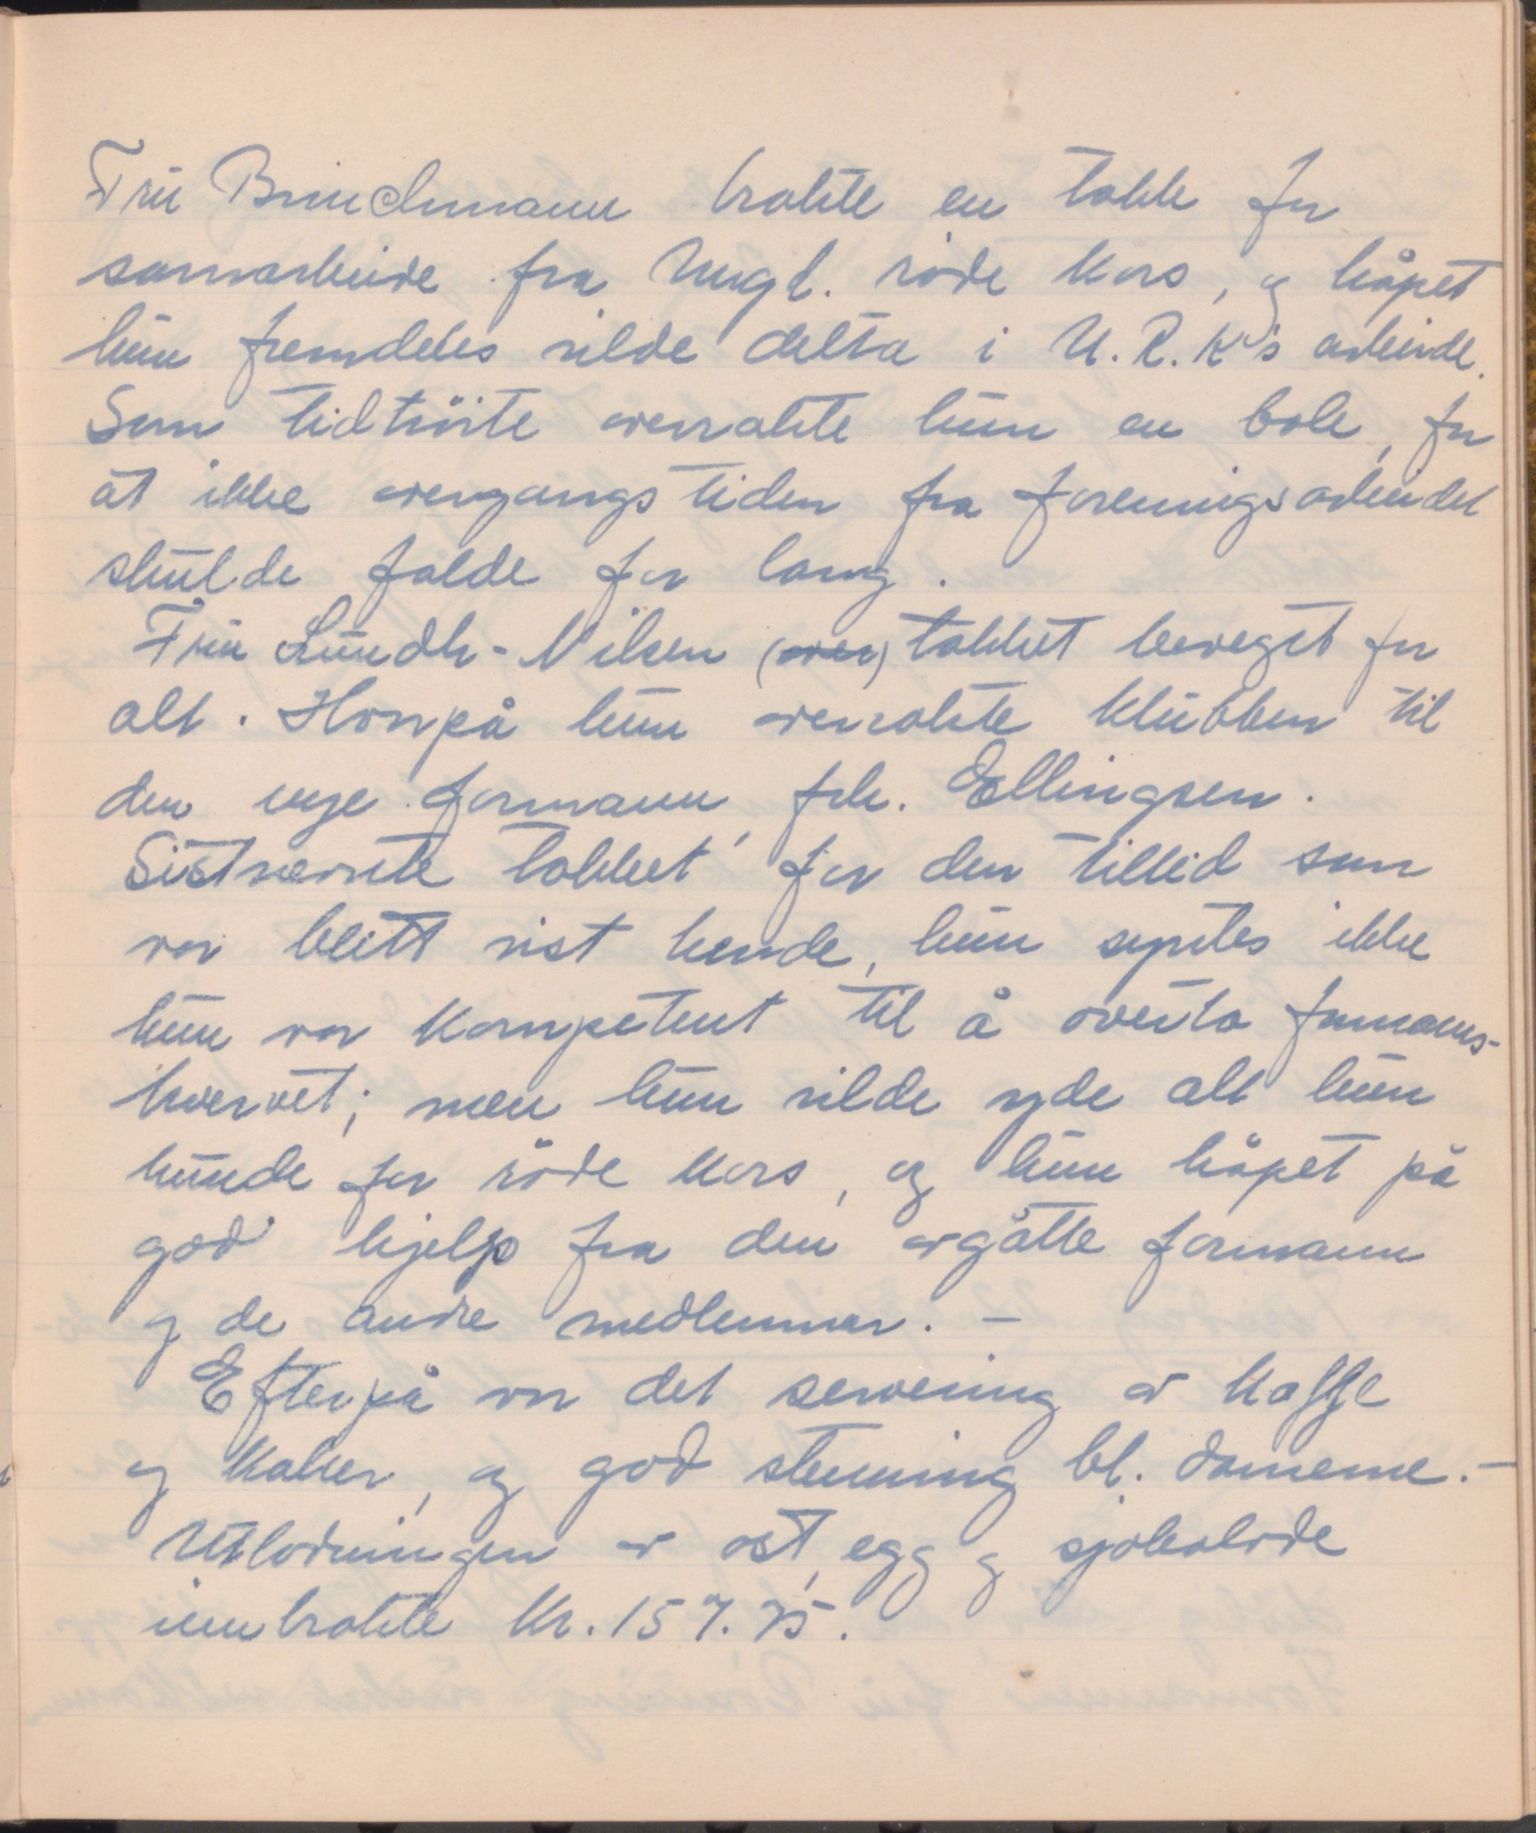 Fru Brinchmann brakte en takk for
samarbeide fra Ungd. røde Kors, og håpet
hun fremdeles vilde delta i U.R.K's arbeide.
Som tidtrøite overrakte hun en bok, for
at ikke overgangstiden fra foreningsarbeidet
skulde falde for lang.
Fru Lundh-Nilsen (over) takket beveget for
alt. Hvorpå hun overrakte klubben til
den nye formann, frk. Ellingsen.
Sistnevnte takket for den tillid som
var blitt vist hende, hun syntes ikke
hun var kompetent til å overta formans-
hvervet; men hun vilde yde alt hun
kunde for røde kors, og hun håpet på
god hjelp fra den avgåtte formann
og de andre medlemmer. -
Efterpå var det servering av kaffe
og kaker, og god stemning bl. damerne. -
Utlodningen av ost, egg og sjokolade
innbrakte Kr. 157.75.